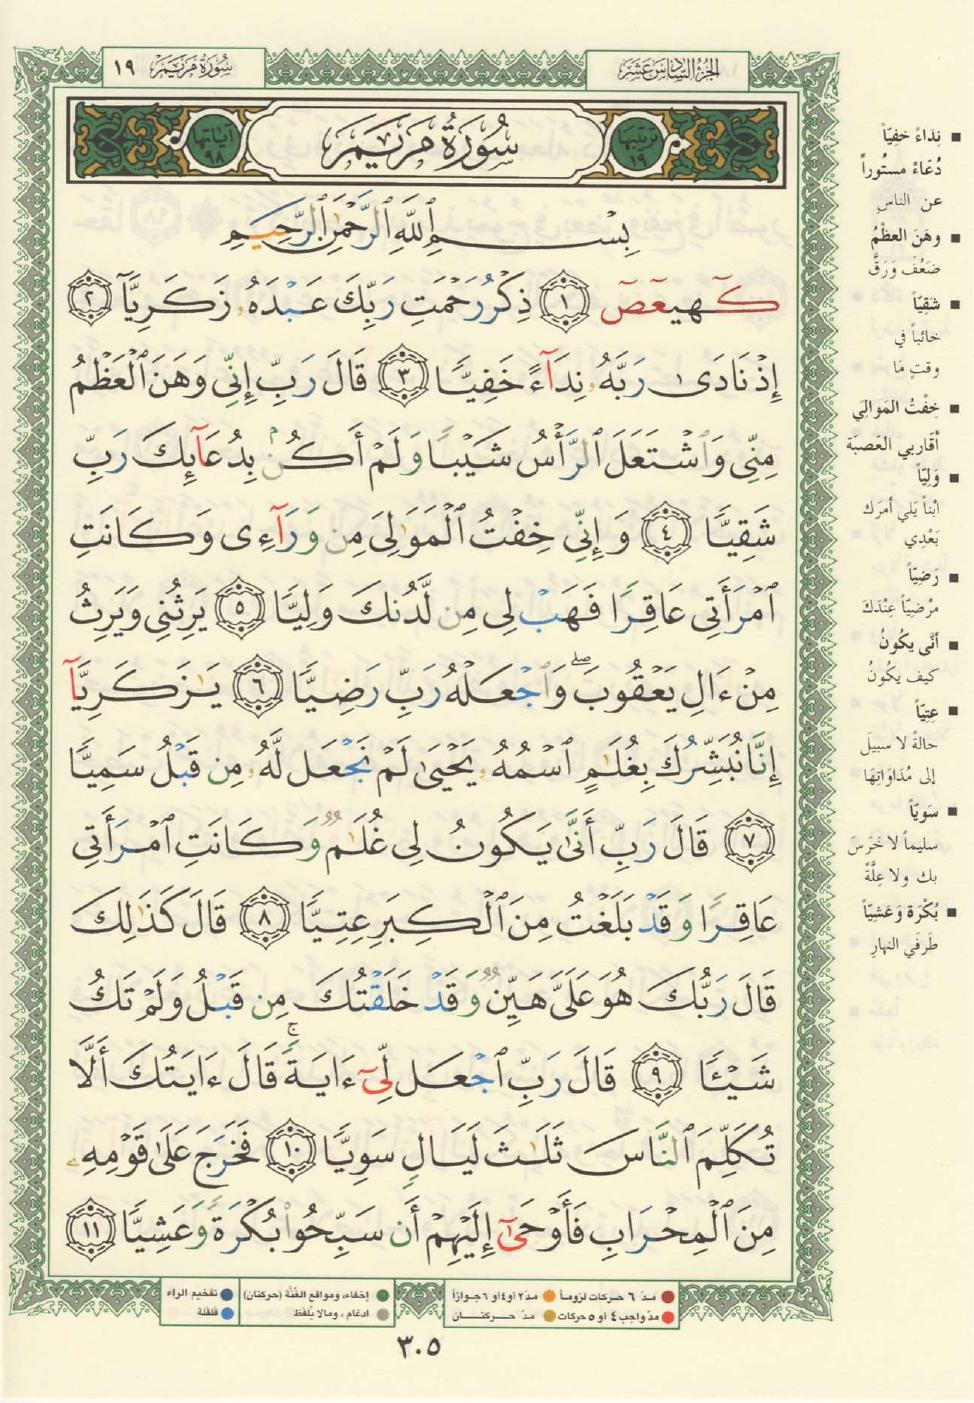 سُورَةُ مَرْيَمَ ١٩
الجُزْءُ السَّادِسَ عَشَرَ
ترتيبها ١٩
سُورَةُ مَرْيَمَ
آياتها ٩٨
بِسْمِ ٱللَّهِ ٱلرَّحْمَٰنِ ٱلرَّحِيمِ
كٓهيعٓصٓ ١ ذِكْرُ رَحْمَتِ رَبِّكَ عَبْدَهُۥ زَكَرِيَّآ ٢
إِذْ نَادَىٰ رَبَّهُۥ نِدَآءً خَفِيًّا ٣ قَالَ رَبِّ إِنِّى وَهَنَ ٱلْعَظْمُ
مِنِّى وَٱشْتَعَلَ ٱلرَّأْسُ شَيْبًا وَلَمْ أَكُنۢ بِدُعَآئِكَ رَبِّ
شَقِيًّا ٤ وَإِنِّى خِفْتُ ٱلْمَوَٰلِىَ مِن وَرَآءِى وَكَانَتِ
ٱمْرَأَتِى عَاقِرًا فَهَبْ لِى مِن لَّدُنكَ وَلِيًّا ٥ يَرِثُنِى وَيَرِثُ
مِنْ ءَالِ يَعْقُوبَ ۖ وَٱجْعَلْهُ رَبِّ رَضِيًّا ٦ يَٰزَكَرِيَّآ
إِنَّا نُبَشِّرُكَ بِغُلَٰمٍ ٱسْمُهُۥ يَحْيَىٰ لَمْ نَجْعَل لَّهُۥ مِن قَبْلُ سَمِيًّا
٧ قَالَ رَبِّ أَنَّىٰ يَكُونُ لِى غُلَٰمٌ وَكَانَتِ ٱمْرَأَتِى
عَاقِرًا وَقَدْ بَلَغْتُ مِنَ ٱلْكِبَرِ عِتِيًّا ٨ قَالَ كَذَٰلِكَ
قَالَ رَبُّكَ هُوَ عَلَىَّ هَيِّنٌ وَقَدْ خَلَقْتُكَ مِن قَبْلُ وَلَمْ تَكُ
شَيْـًٔا ٩ قَالَ رَبِّ ٱجْعَل لِّىٓ ءَايَةً ۚ قَالَ ءَايَتُكَ أَلَّا
تُكَلِّمَ ٱلنَّاسَ ثَلَٰثَ لَيَالٍ سَوِيًّا ١٠ فَخَرَجَ عَلَىٰ قَوْمِهِۦ
مِنَ ٱلْمِحْرَابِ فَأَوْحَىٰٓ إِلَيْهِمْ أَن سَبِّحُوا۟ بُكْرَةً وَعَشِيًّا ١١
■ نِدَاءً خفِيّاً
دُعَاءً مستُوراً
عن الناسِ
■ وهَنَ العظْمُ
ضَعُفَ وَرَقَّ
■ شَقِيّاً
خائباً في
وقتٍ مَا
■ خِفْتُ المَوالِيَ
أقاربي العَصبَة
■ وَلِيّاً
ابْناً يَلي أمرَك
بَعْدِي
■ رَضِيّاً
مرْضِيّاً عِنْدَكَ
■ أنَّى يكُونُ
كيف يكُونُ
■ عِتِيّاً
حالةً لا سبيلَ
إلى مُدَاوَاتِهَا
■ سَوِيّاً
سليماً لا خَرَسَ
بك ولا عِلَّةً
■ بُكْرَةً وَعَشِيّاً
طَرفَي النهارِ
مدّ ٦ حركات لزوماً مدّ ٢ أو ٤ أو ٦ جوازاً
مدّ واجب ٤ أو ٥ حركات مدّ حركتان
إخفاء، ومواقع الغُنَّة (حركتان) تفخيم الراء
ادغام، ومالا يُلفظ قلقلة
٣٠٥